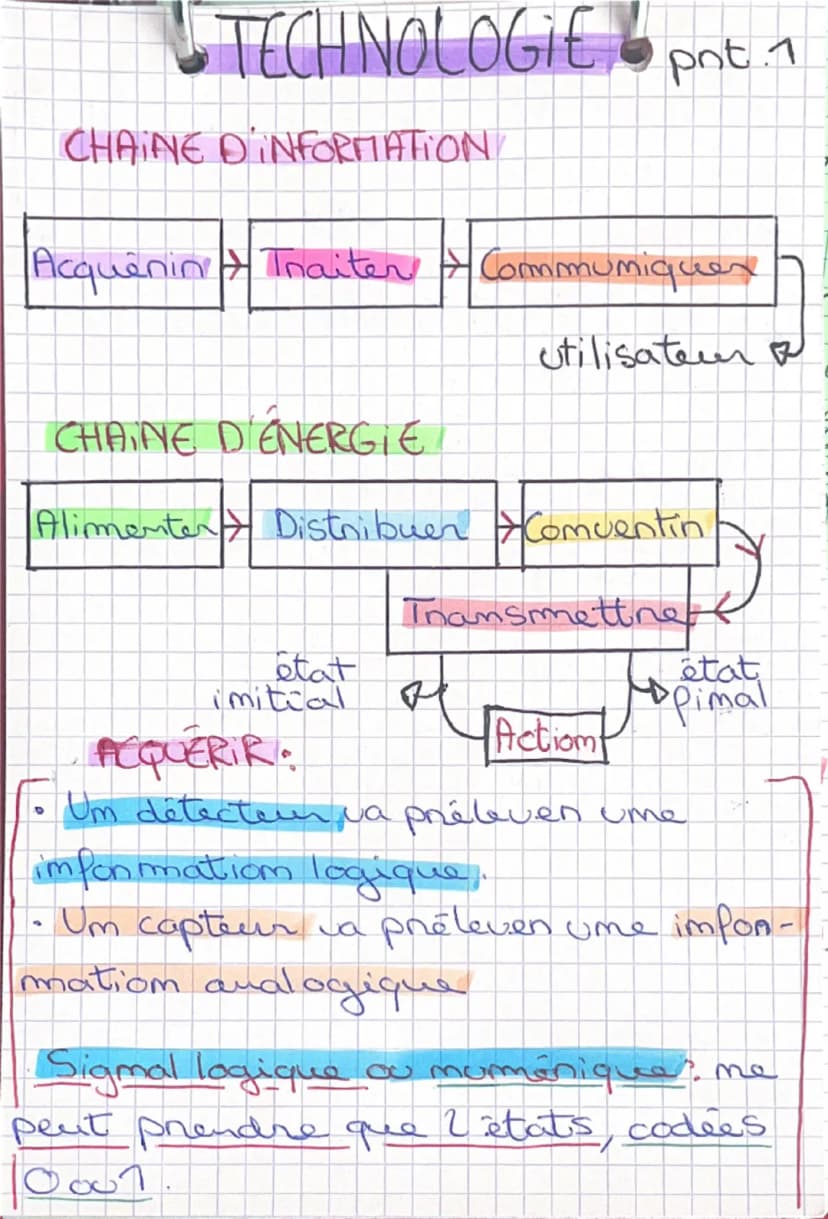 TECHNOLOGIE prt.1
CHAINE D'INFORMATION
Acquérir Traiter Communiquer
utilisateur
CHAINE D'ÉNERGIE
Alimenter Distribuer Convertir
Transmettre
état initial état final
Action
ACQUÉRIR.
• Un détecteur va prélever une
information logique.
• Un capteur va prélever une infor-
mation analogique
Signal logique ou numérique : ne
peut prendre que 2 états, codées
0 ou 1.